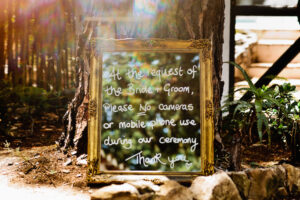 At the request of
the Bride + Groom,
Please No cameras
or mobile phone use
during our Ceremony
Thank you